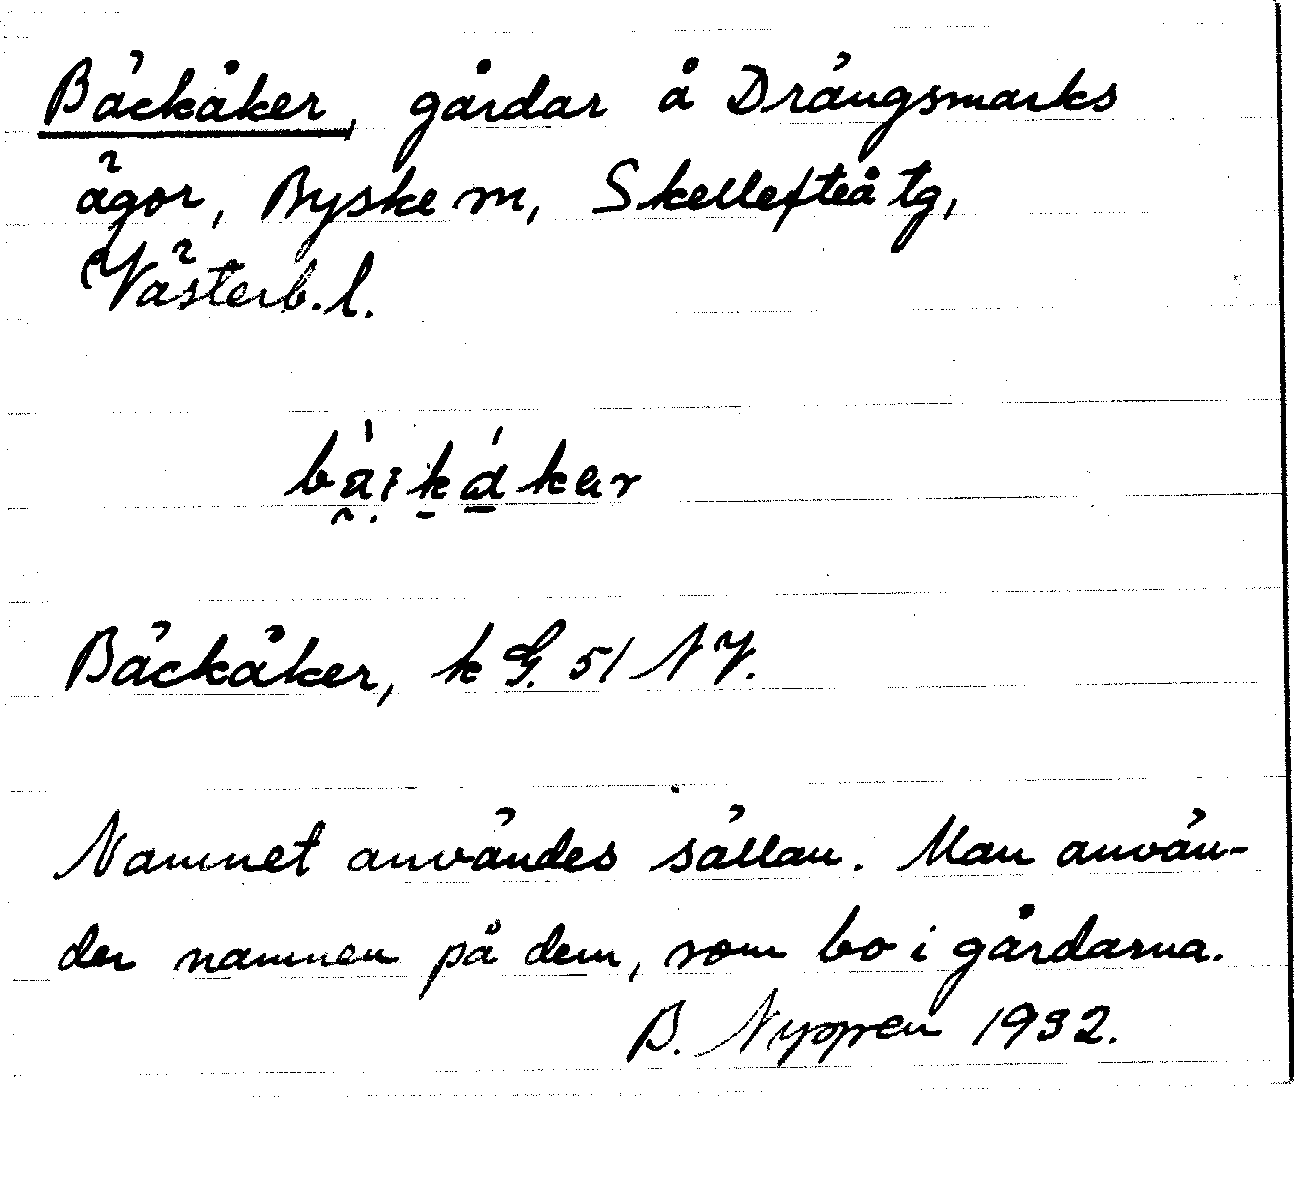 Bäckåker, gårdar å Drängsmarks
ägor, Byske sn, Skellefteå tg,
Västerb. l.
bàikákar
Bäckåker, k G. 51 NV.
Namnet användes sällan. Man använ-
der namnen på dem, som bo i gårdarna.
B. Nyppen 1932.